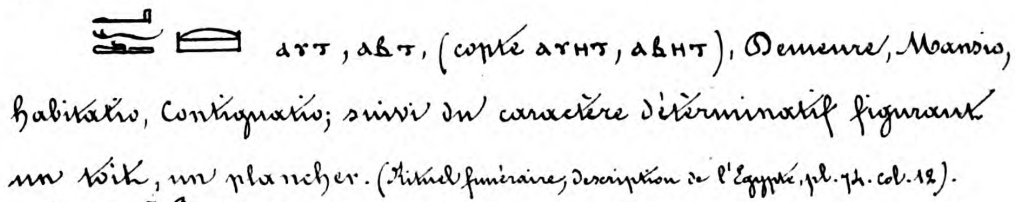 ⲁⲩⲧ, ⲁⲃⲧ, (copte ⲁⲩⲏⲧ, ⲁⲃⲏⲧ), Demeure, Mansio,
habitatio, Contignatio; suivi du caractère déterminatif figurant
un toit, un plancher. (Rituel funéraire, description de l'Egypte, pl. 74. col. 12).